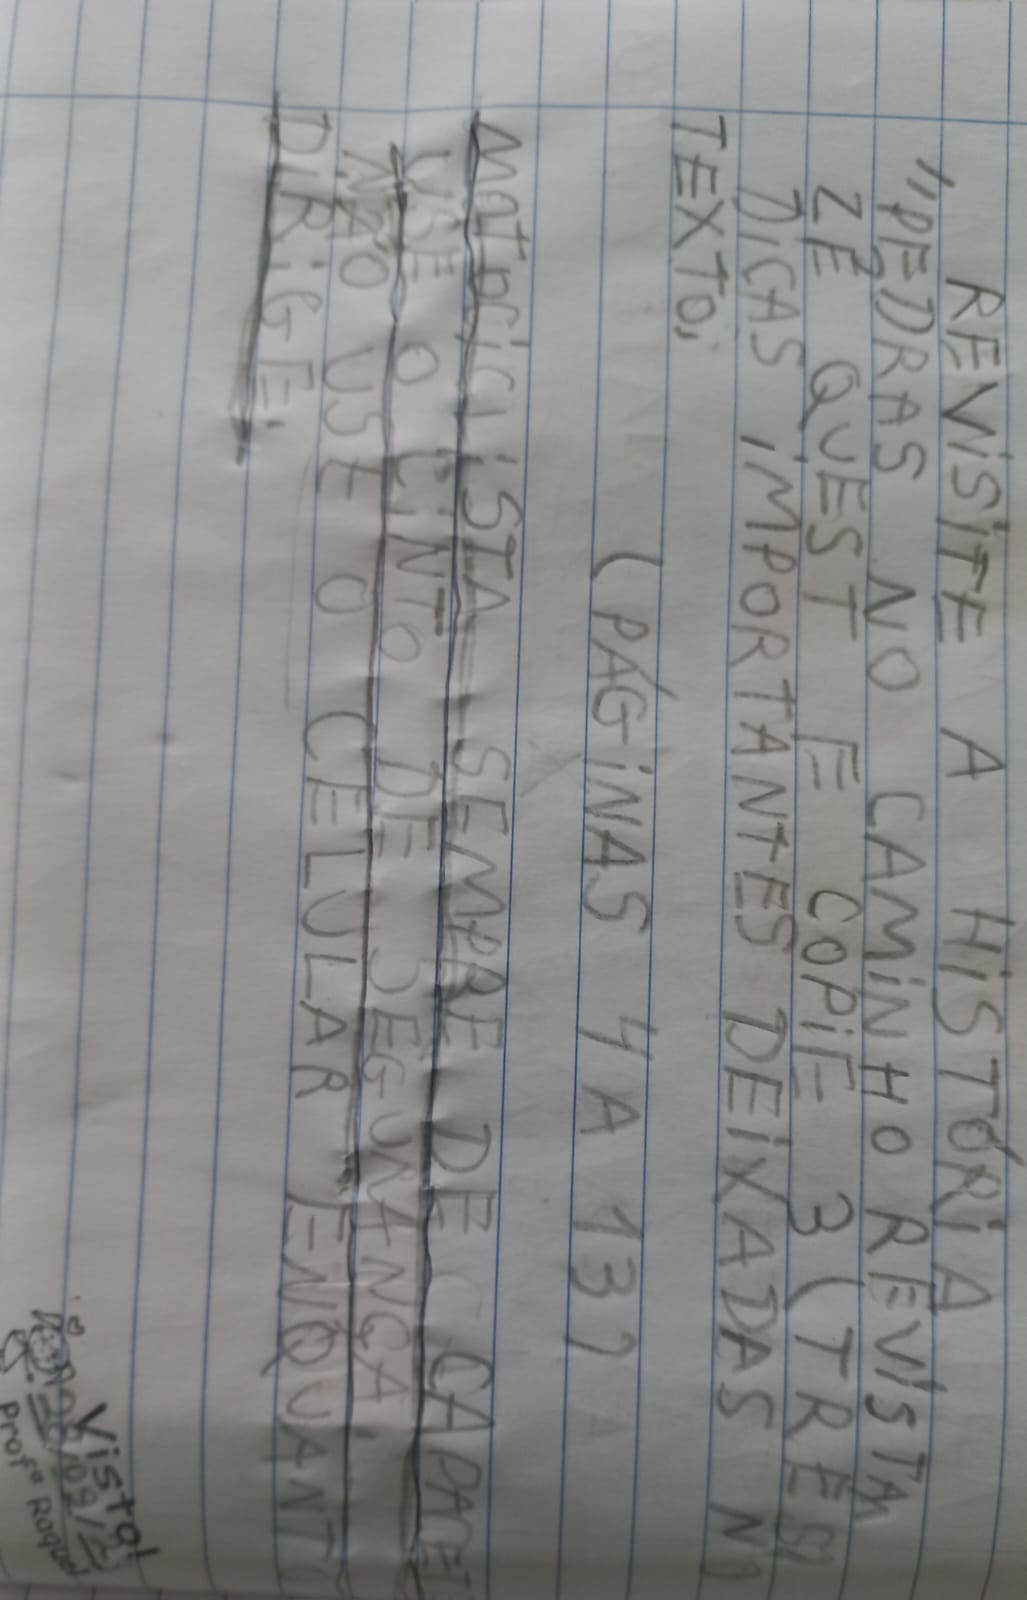 REVISITE A HISTÓRIA
"PEDRAS NO CAMINHO REVISTA
ZÉ QUEST E COPIE 3 (TRES)
DICAS IMPORTANTES DEIXADAS NO
TEXTO,
(PÁGINAS 4 A 13)
MOTOCICLISTA SEMPRE DE CAPACETE
USE O CINTO DE SEGURANÇA
NÃO USE O CELULAR ENQUANTO
DIRIGE.
Visto!
Profª Raquel